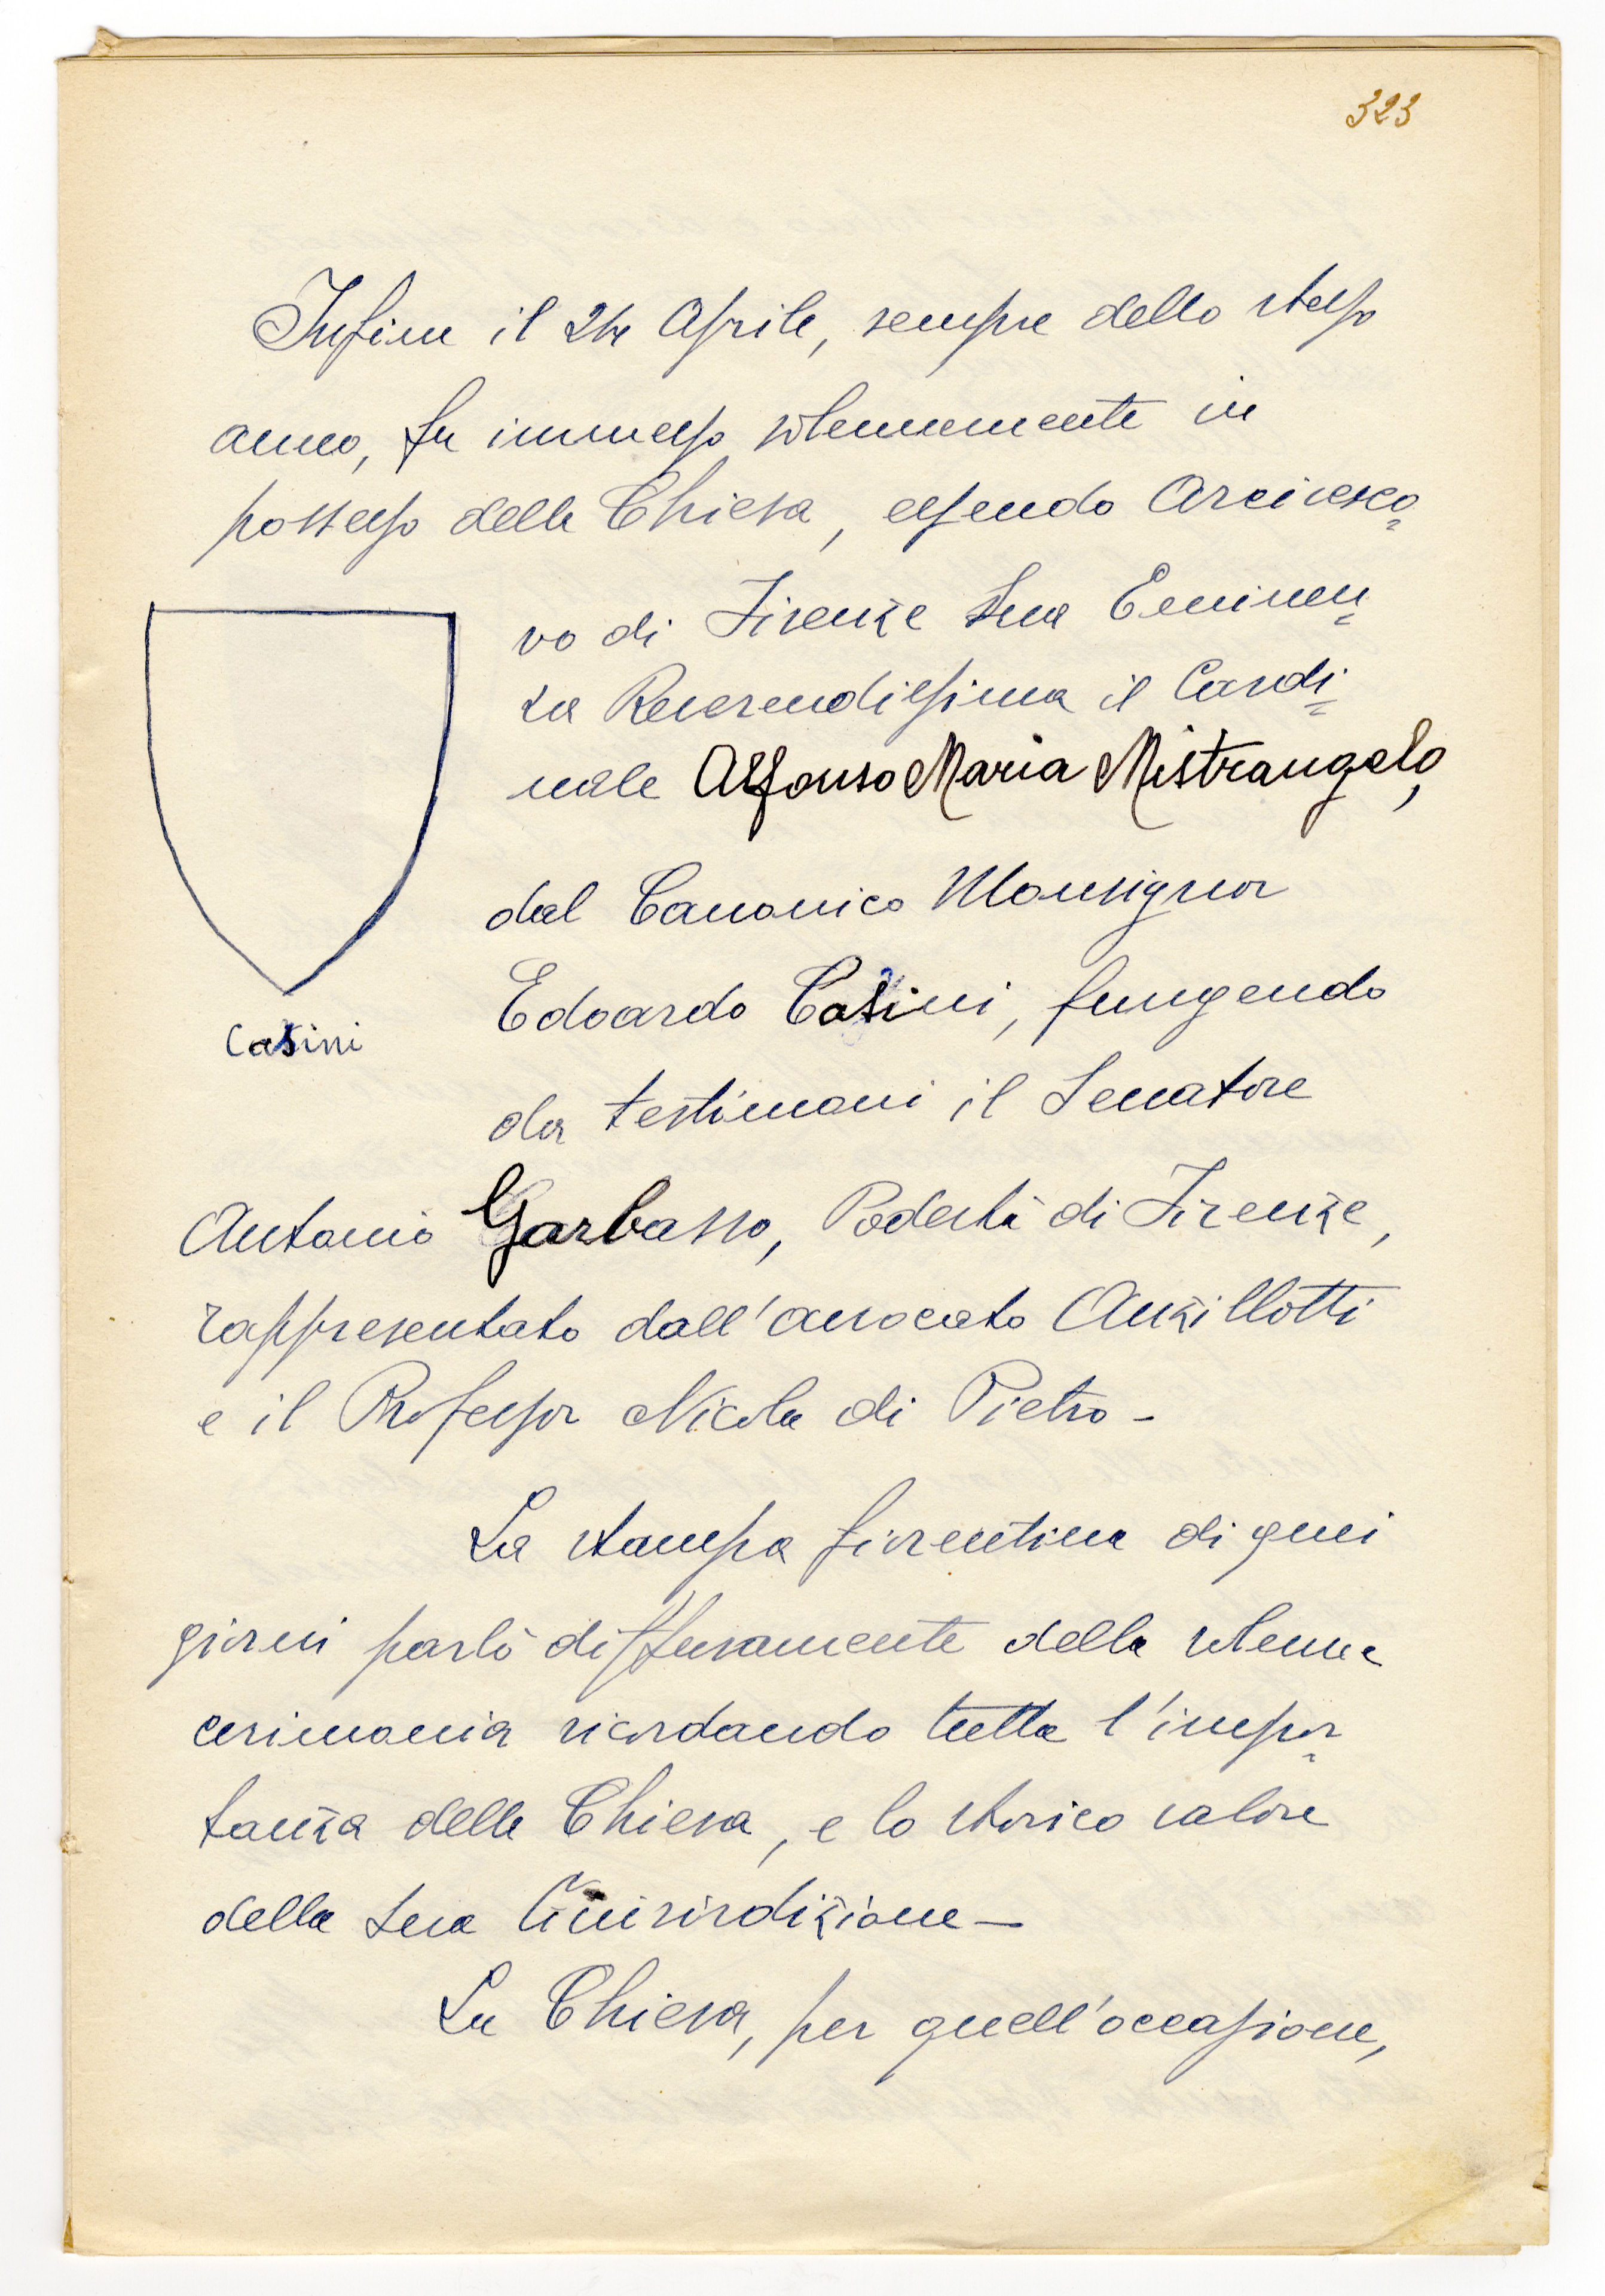 323
Infine il 24 Aprile, sempre dello stesso
anno, fu immesso solennemente in
possesso della Chiesa, essendo Arcivesco=
vo di Firenze Sua Eminen=
za Reverendissima il Cardi=
nale Alfonso Maria Mistrangelo,
dal Canonico Monsignor
Edoardo Casini, fungendo
da testimoni il Senatore
Casini
Antonio Garbasso, Podestà di Firenze,
rappresentato dall'avvocato Anzillotti
e il Professor Nicola di Pietro -
La stampa fiorentina di quei
giorni parlò diffusamente della solenne
cerimonia ricordando tutta l'impor=
tanza della Chiesa, e lo storico valore
della sua Giurisdizione -
La Chiesa, per quell'occasione,